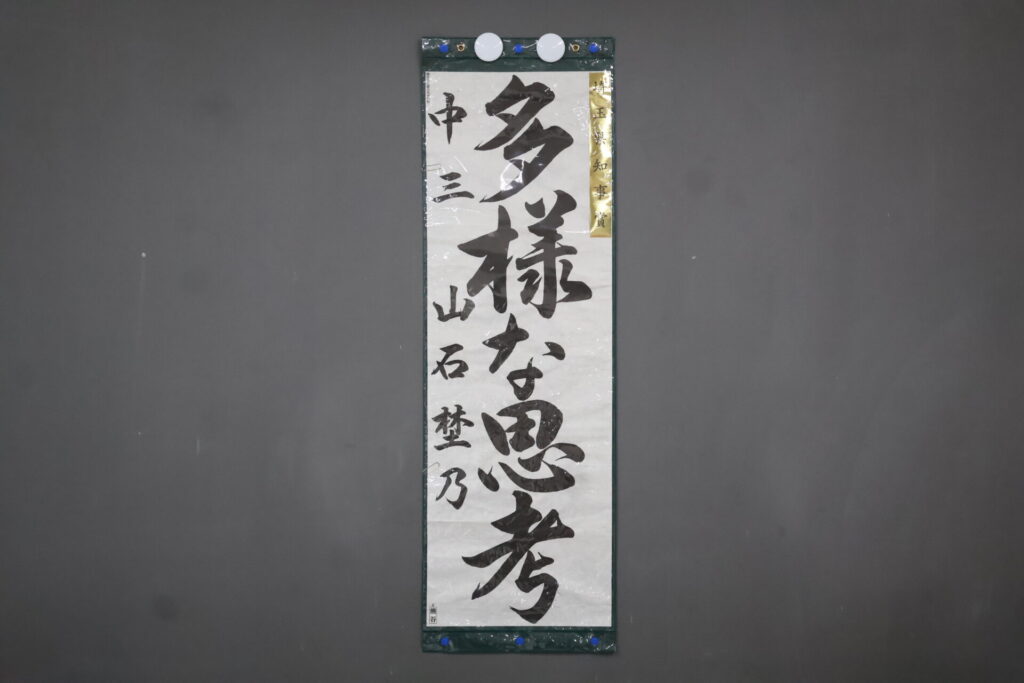 埼玉県知事賞
多様な思考
中三 山石埜乃